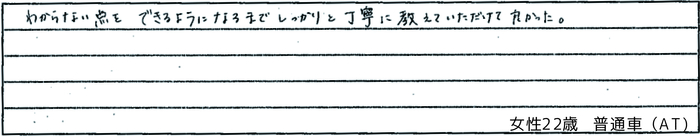 わからない点を できるようになるまで しっかりと丁寧に教えていただけて良かった。
女性22歳　普通車（AT）